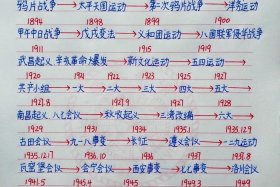 鸦片战争 → 太平天国运动 → 第二次鸦片战争 → 洋务运动
1894 1898 1899 1900
甲午中日战争 → 戊戌变法 → 义和团运动 → 八国联军侵华战争
1911 1915 1919
武昌起义 辛亥革命大爆发 → 新文化运动 → 五四运动 →
1920 1921 1922 1923 1925 1927
共产小组 → 一大 → 二大 → 三大 → 四大 → 五大 →
1927.8 1927.9 1928
南昌起义 八七会议 → 秋收起义 → 三湾改编 → 六大 →
1929.12 1931 1935.1 1935.9
古田会议 → 九一八事变 → 长征 → 遵义会议 → 一二九运动
1935.12.17 1936.10 1936.12 1937.7.7 1937.8
瓦窑堡会议 → 会宁会师 → 西安事变 → 七七事变 → 洛川会议
1941.5 1945.4 1949